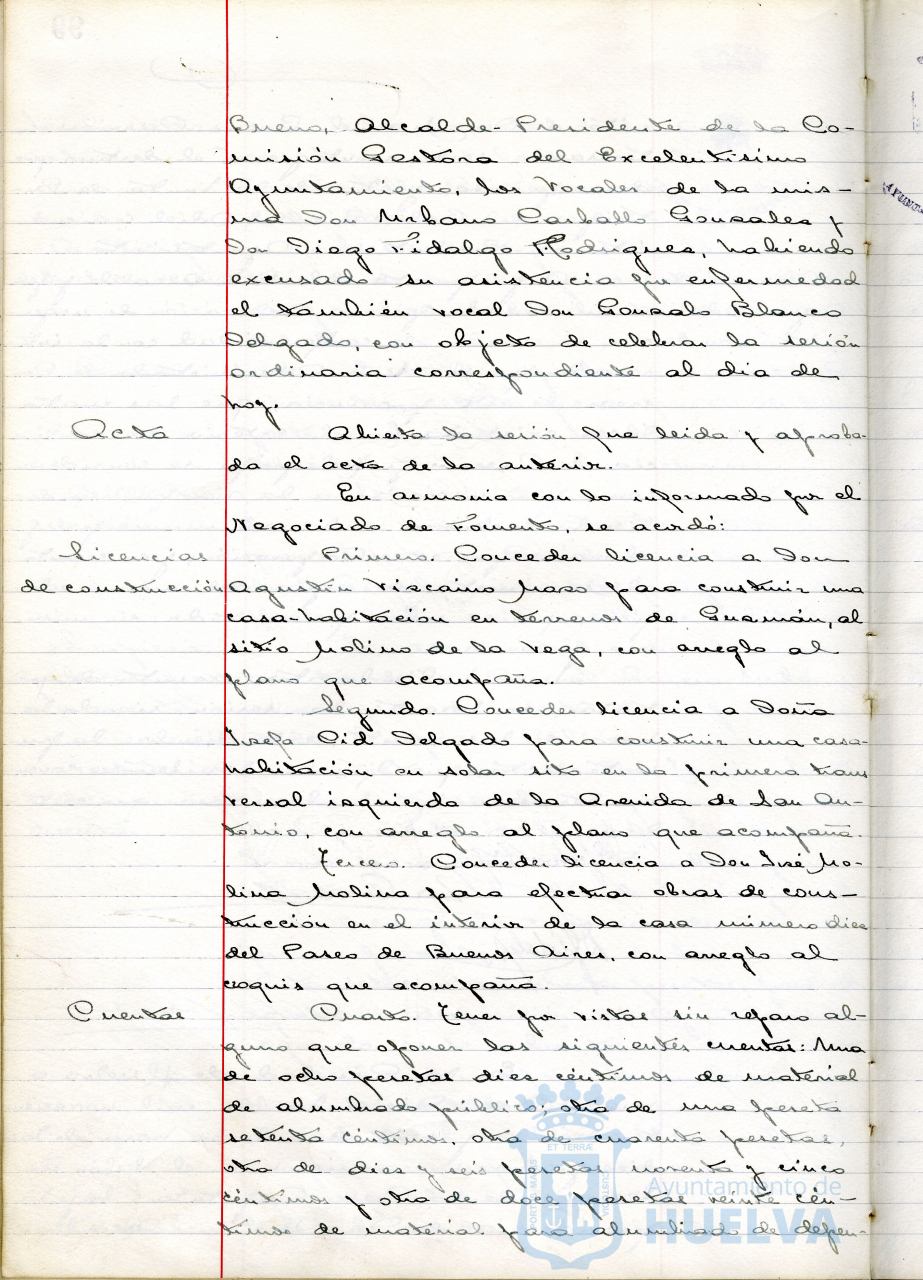 Bueno, Alcalde-Presidente de la Co-
misión Gestora del Excelentisimo
Ayuntamiento, los Vocales de la mis-
ma Don Urbano Carballo Gonzales y
Don Diego Fidalgo Rodrigues, habiendo
excusado su asistencia por enfermedad
el también vocal Don Gonzalo Blanco
Delgado, con objeto de celebrar la sesión
ordinaria correspondiente al dia de
hoy.
Acta
Abierta la sesión fue leida y aproba-
da el acta de la anterior.
En armonia con lo informado por el
Negociado de Fomento, se acordó:
Licencias
de construcción
Primero. Conceder licencia a Don
Agustín Vizcaino para construir una
casa-habitación en terrenos de Guzmán, al
sitio Molino de la Vega, con arreglo al
plano que acompaña.
Segundo. Conceder licencia a Doña
Josefa Cid Delgado para construir una casa-
habitación en solar sito en la primera trans
versal izquierda de la Avenida de San An-
tonio, con arreglo al plano que acompaña.
Tercero. Conceder licencia a Don José Mo-
lina Molina para efectuar obras de cons-
trucción en el interior de la casa número diez
del Paseo de Buenos Aires, con arreglo al
croquis que acompaña.
Cuentas
Cuarto. Tener por vistas sin reparo al-
guno que oponer las siguientes cuentas: Una
de ocho pesetas diez céntimos de material
de alumbrado público; otra de una peseta
setenta céntimos, otra de cuarenta pesetas,
otra de dies y seis pesetas noventa y cinco
céntimos y otra de doce pesetas veinte cén-
timos de material para alumbrado de defen-
Ayuntamiento de
HUELVA